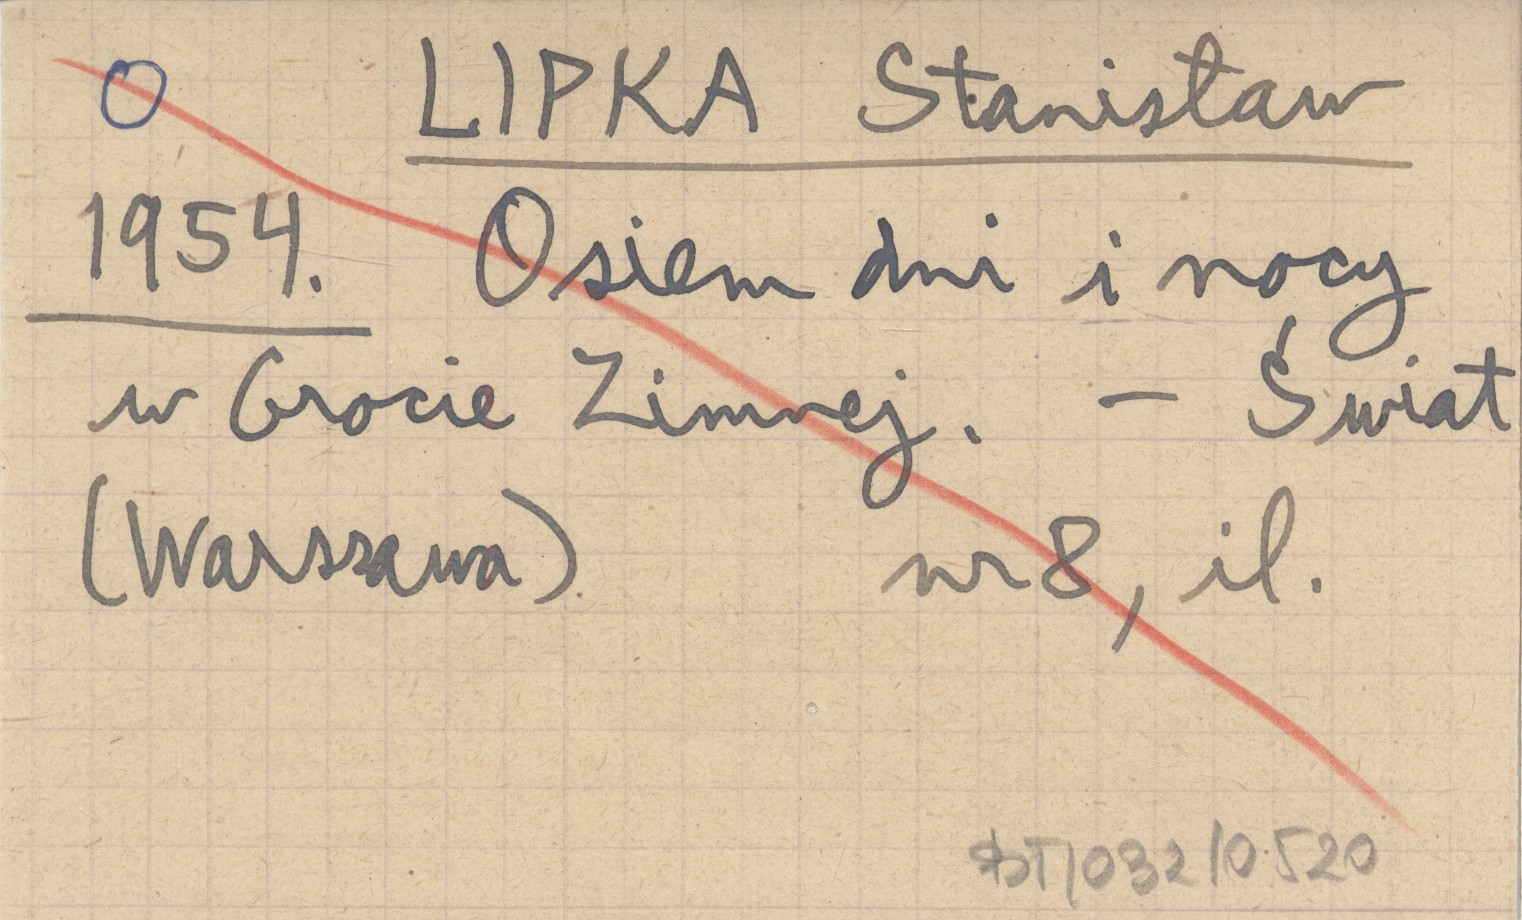 O LIPKA Stanisław
1954. Osiem dni i nocy
w Grocie Zimnej. – Świat
(Warszawa). nr 8, il.
032/0520